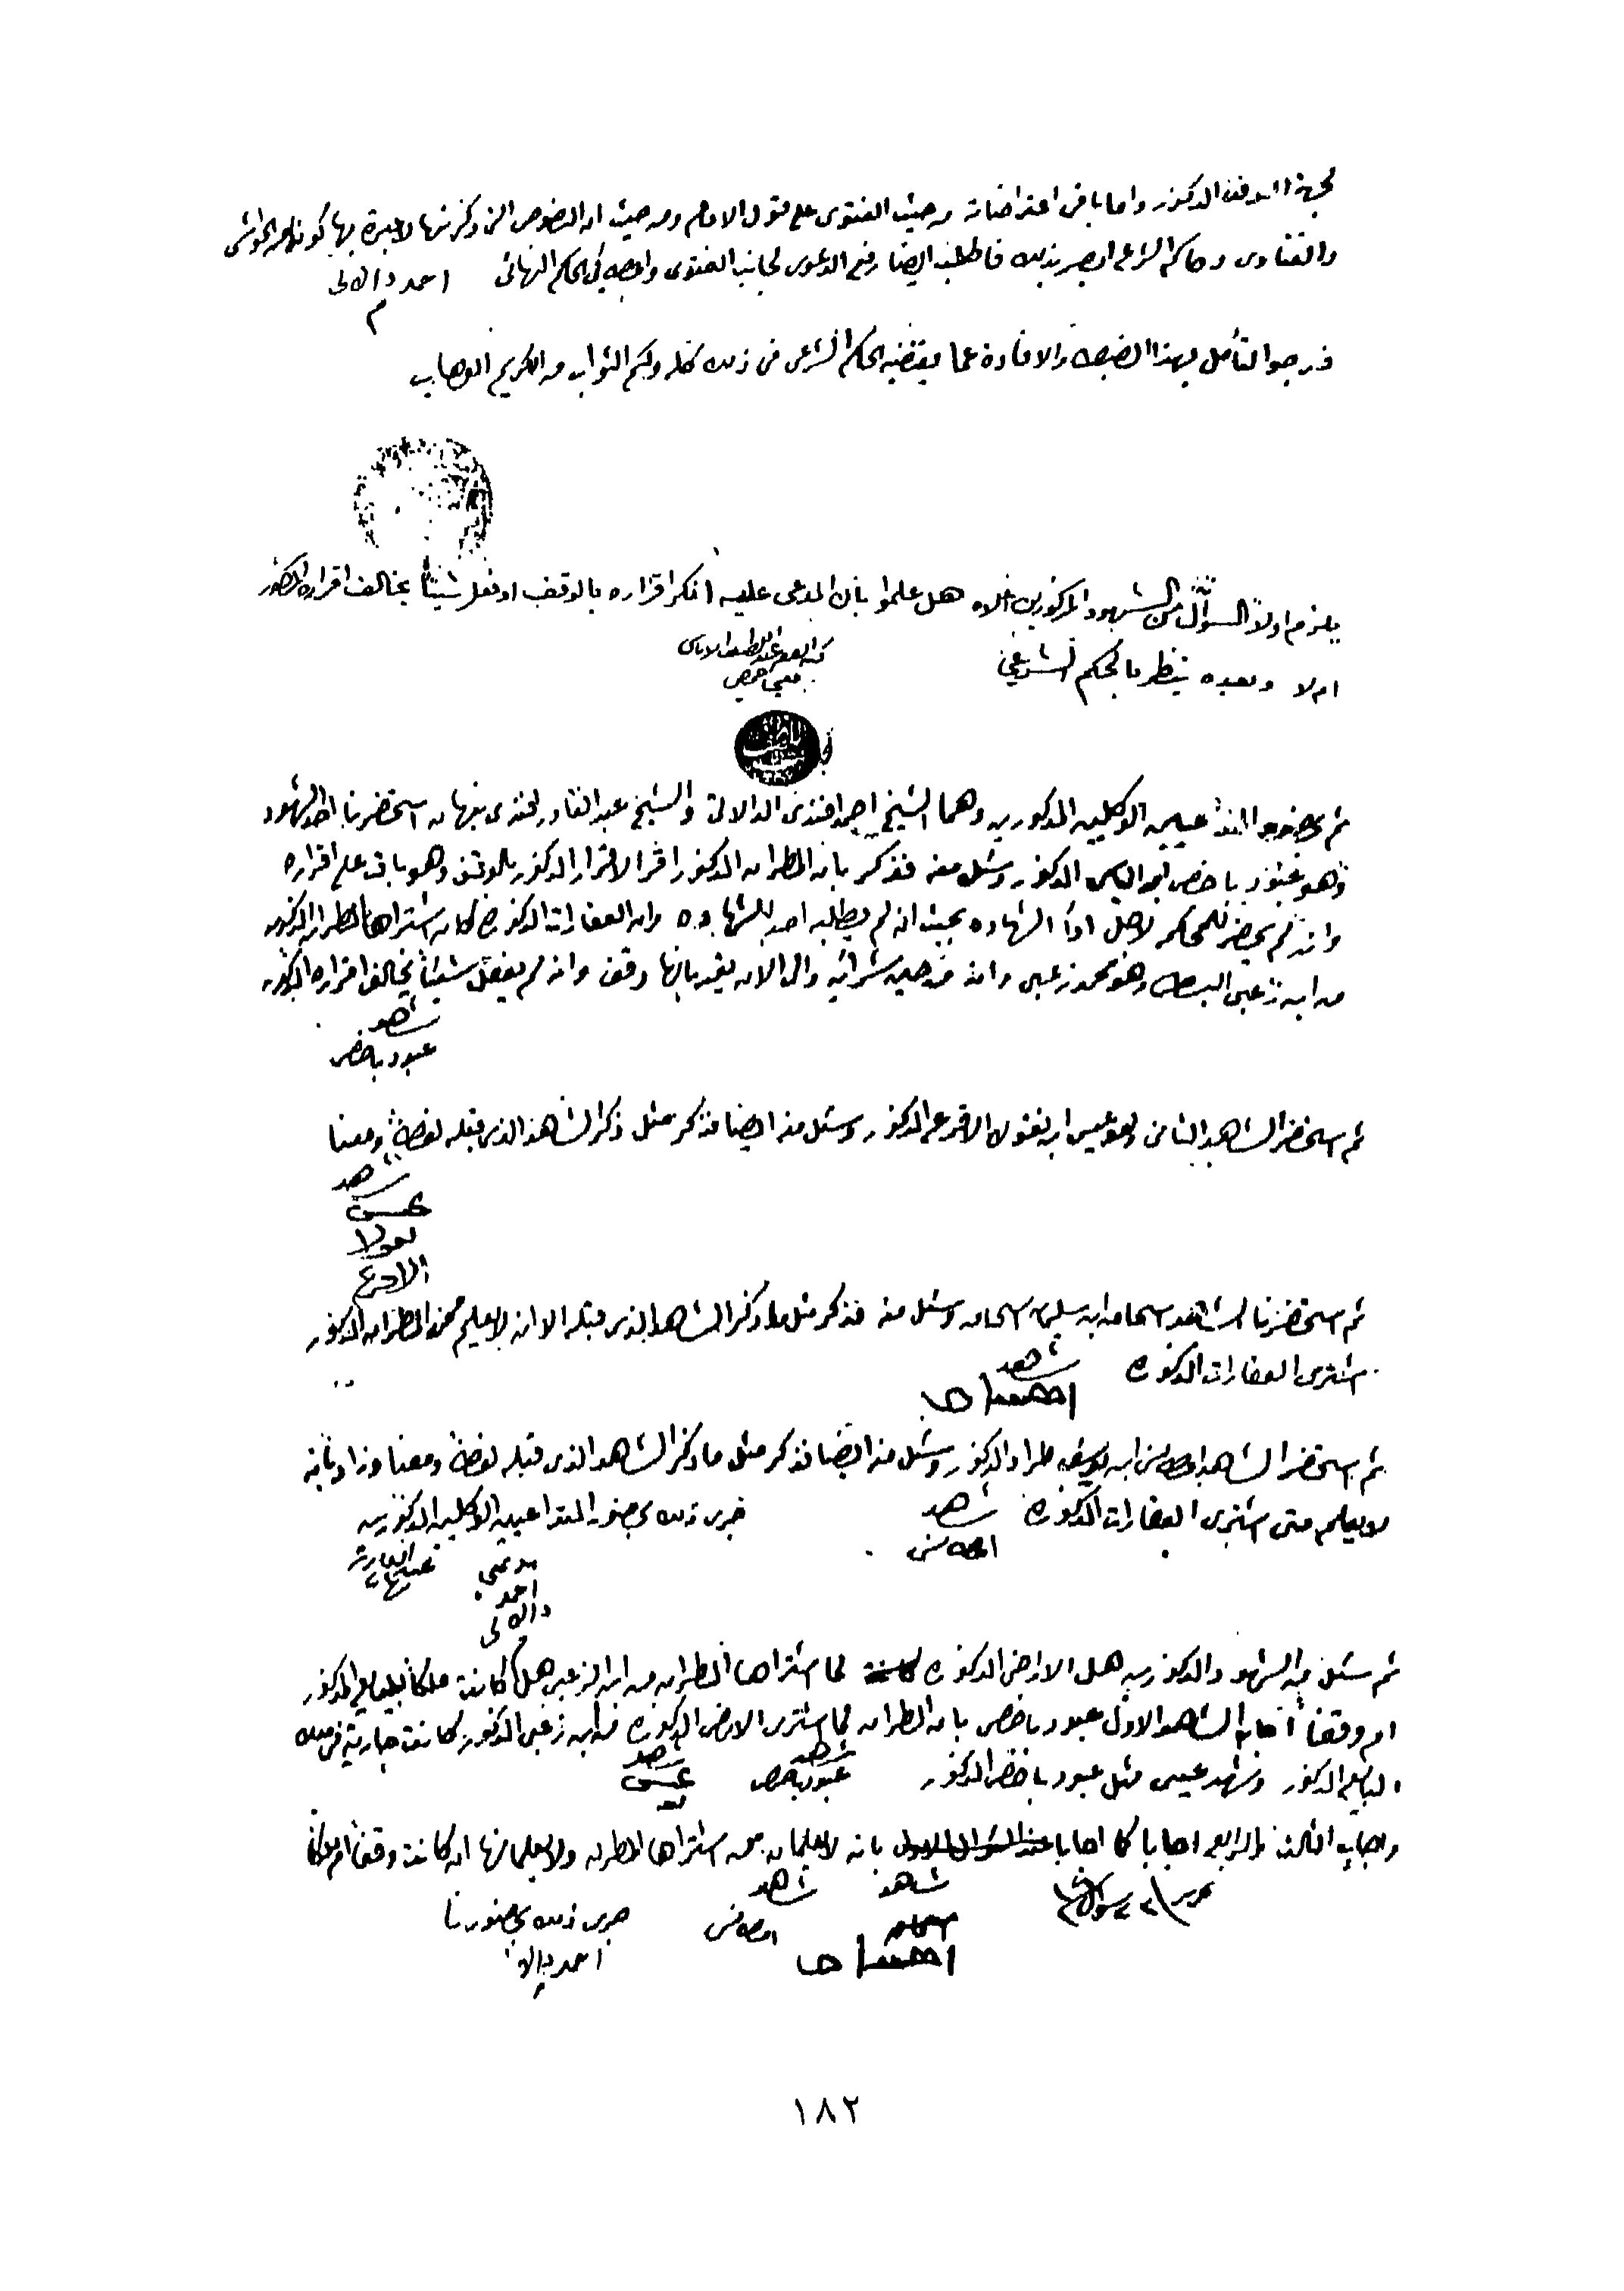 لجهة الوقف المذكور واما باقي اعتراضاته من حيث الفتوى على قول الامام ومن حيث ان النصوص التي ذكرتها لا عبرة بها كونها من الحواشي
والفتاوى وحاكم الشرع ادبير بذلك فاطلب ايضا رفع الدعوى لجانب الفتوى واعطائي الحكم النهائي احمد دالاتي
فنرجو التأمل بهذا الضبط والافادة عما يقتضيه الحكم الشرعي في ذلك كله ولكم الثواب من الكريم الوهاب
يلزم اولاً السؤال من الشهود المذكورين اعلاه هل علموا بأن المدعى عليه انكر اقراره بالوقف او فعل شيئاً يخالف اقراره المذكور
ام لا وبعده ينظر بالحكم الشرعي
كتبه الفقير عبد اللطيف الاتاسي
مفتي حمص
ثم بحضور المتداعيين الوكلين المذكورين وهما الشيخ احمد افندي الدالاتي والشيخ عبد القادر افندي نبهان استحضرنا احد الشهود
وهو عبود باخص المذكور وسئل منه فذكر بان المطران المذكور اقر الاقرار المذكور بالوقف وهو باق على اقراره
وانه لم يحضر للمحكمه لاجل اداء الشهاده بحيث انه لم يطلبه احد للشهاده وان العقارات المذكورة كان اشتراها المطران المذكور
من ابن زعبي البسط وهو محمد زعبي وانه من حين شرائه والى الان يقيد بانها وقف وانه لم يفعل شيئاً يخالف اقراره المذكور
شاهد
عبود باخص
ثم استحضر الشاهد الثاني وهو عيسى ابن نقولا الاقرع المذكور وسئل منه ايضا فذكر مثل ذكر الشاهد الذي قبله لفظاً ومعنا
شاهد
عيسى
نقولا
الاقرع
ثم استحضرنا الشاهد اسحاق ابن سليمان وسئل منه فذكر مثل ما ذكر الشاهد الذي قبله الا انه لا يعلم ممن المطران المذكور
اشترى العقارات المذكورة شاهد
ثم استحضر الشاهد ابن يوسف طراد المذكور وسئل منه ايضا فذكر مثل ما ذكر الشاهد الذي قبله لفظاً ومعنا وزاد بانه
لا يعلم متى اشترى العقارات المذكورة شاهد جرى ذلك بحضور المتداعيين الوكلين المذكورين
احمد
دالاتي
عبد القادر
نبهان
ثم سئل من الشهود المذكورين هل الارض المذكورة لما اشتراها المطران من ابن الزعبي هل كانت ملكاً للبايع المذكور
ام وقفاً اجاب الشاهد الاول عبود باخص بان المطران لما اشترى الارض المذكورة من ابن زعبي المذكور كانت جارية في ملك
البايع المذكور وشهد عيسى مثل عبود باخص المذكور شاهد عبود باخص شاهد عيسى
واجاب الثالث والرابع اجابا كما اجابا عند السؤال الاول بانه لا يعلمان ممن اشتراها المطران ولا يعلمانها ان كانت وقفاً ام ملكاً
شاهد
شاهد
جرى ذلك بحضورنا
احمد دالاتي
١٨٢